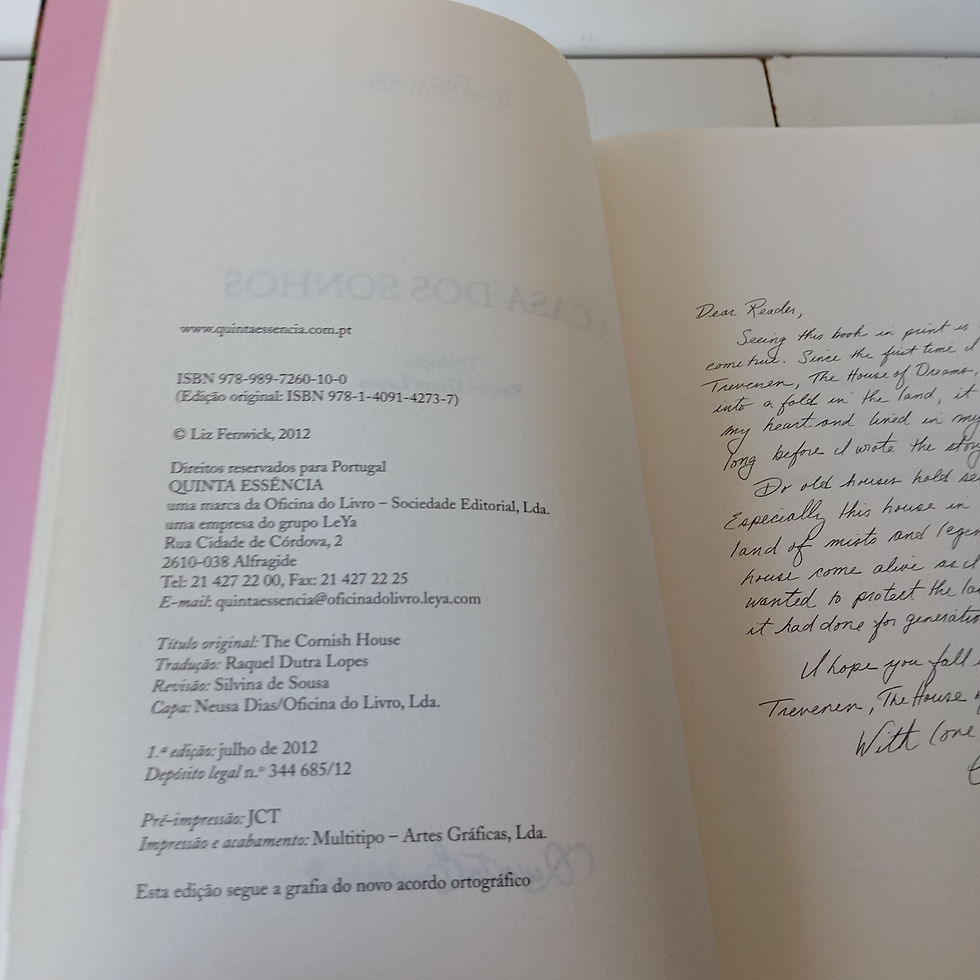 www.quintaessencia.com.pt
ISBN 978-989-7260-10-0
(Edição original: ISBN 978-1-4091-4273-7)
© Liz Fenwick, 2012
Direitos reservados para Portugal
QUINTA ESSÊNCIA
uma marca da Oficina do Livro – Sociedade Editorial, Lda.
uma empresa do grupo LeYa
Rua Cidade de Córdova, 2
2610-038 Alfragide
Tel: 21 427 22 00, Fax: 21 427 22 25
E-mail: quintaessencia@oficinadolivro.leya.com
Título original: The Cornish House
Tradução: Raquel Dutra Lopes
Revisão: Silvina de Sousa
Capa: Neusa Dias/Oficina do Livro, Lda.
1.ª edição: julho de 2012
Depósito legal n.º 344 685/12
Pré-impressão: JCT
Impressão e acabamento: Multitipo – Artes Gráficas, Lda.
Esta edição segue a grafia do novo acordo ortográfico
A CASA DOS SONHOS
Dear Reader,
Seeing this book in print is
come true. Since the first time I
Trevenen, The House of Dreams,
into a fold in the land, it
my heart and lived in my
long before I wrote the story
Do old houses hold
Especially this house in
land of mists and
house come alive as I
wanted to protect the
it had done for
I hope you fall
Trevenen, The House
With love